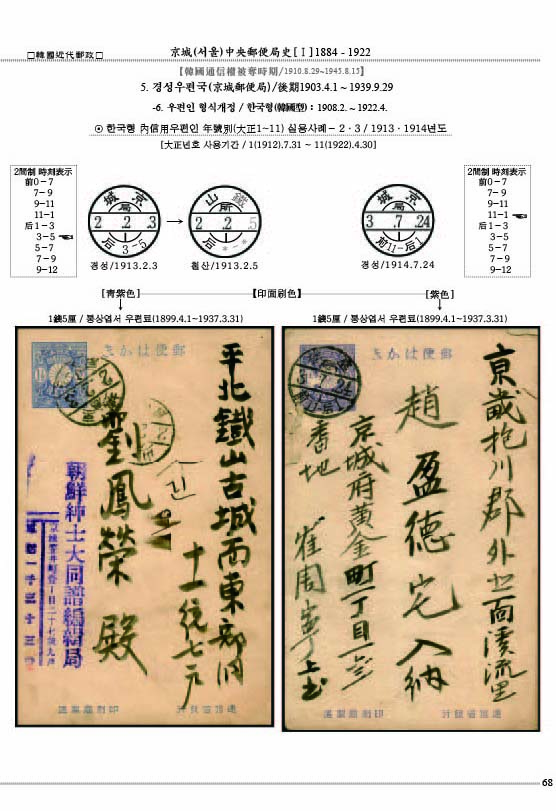 □韓國近代郵政□
京城(서울)中央郵便局史[Ⅰ]1884 - 1922
【韓國通信權被奪時期/1910.8.29~1945.8.15】
5. 경성우편국(京城郵便局)/後期1903.4.1 ~ 1939.9.29
-6. 우편인 형식개정 / 한국형(韓國型) : 1908.2. ~ 1922.4.
⊙ 한국형 內信用우편인 年號別(大正1~11) 실용사례 - 2 · 3 / 1913 · 1914년도
[大正년호 사용기간 / 1(1912).7.31 ~ 11(1922).4.30]
2間制 時刻表示
前0 - 7
7 - 9
9-11
11-1
后1 - 3
3-5 ☜
5-7
7-9
9-12
京城
局
2 2 3
3-5
后
경성/1913.2.3
→
鐵山
所
2 2 5
后
철산/1913.2.5
京城
局
3 7 24
前11-后1
경성/1914.7.24
2間制 時刻表示
前0 - 7
7 - 9
9-11
11-1 ☜
后1 - 3
3-5
5-7
7-9
9-12
[靑紫色]
【印面刷色】
[紫色]
1錢5厘 / 통상엽서 우편료(1899.4.1~1937.3.31)
1錢5厘 / 통상엽서 우편료(1899.4.1~1937.3.31)
きかは便郵
平北鐵山古城面東部洞
十一統七戶
劉鳳榮 殿
朝鮮紳士大同譜編緝局
造謹局刷印
行發省信遞
きかは便郵
京畿抱川郡外北面溪流里
趙盈德宅入納
京城府黃金町一丁目
番地
崔周
造謹局刷印
行發省信遞
68